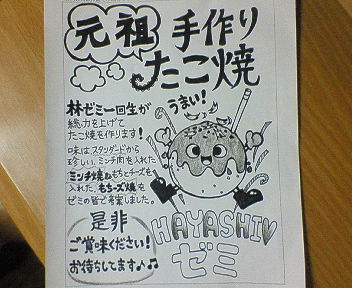 元祖 手作り
たこ焼
うまい!
林ゼミ一回生が
総力を上げて
たこ焼を作ります!
味は、スタンダードから
珍しい、ミンチ肉を入れた
ミンチ焼、もちとチーズを
入れた、もちーズ焼を
ゼミの皆で考案しました。
是非
ご賞味ください!
お待ちしてます♪♫
HAYASHI♥
ゼミ